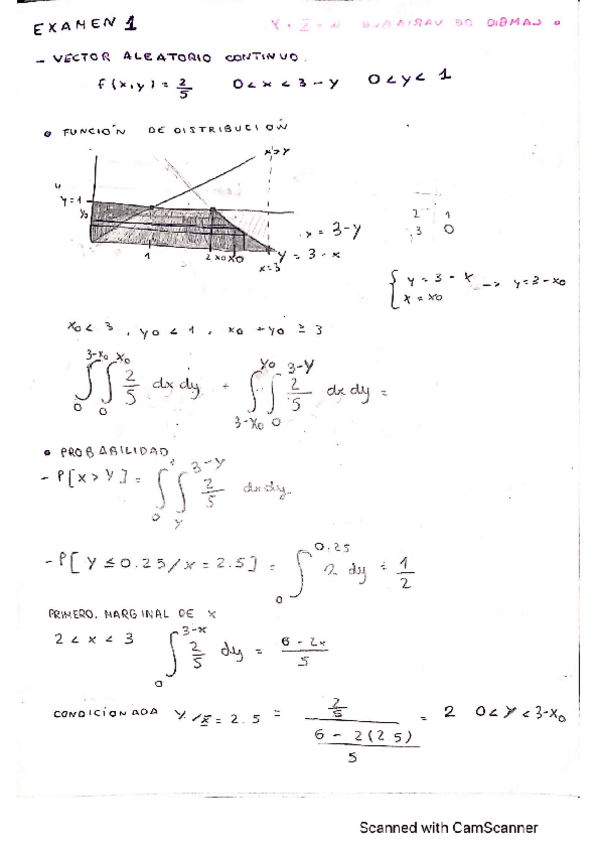 EXAMEN 1
- VECTOR ALEATORIO CONTINUO.
f(x,y) = 2/5 0<x<3-y 0<y<1
• FUNCIÓN DE DISTRIBUCIÓN
x>y
y=1
y0
1 2 x0 x0
x=3
x = 3-y
y = 3-x
2 1
3 0
{ y = 3 - x → y=3-x0
x = x0
x0 < 3 , y0 < 1 , x0 + y0 ≥ 3
∫_0^{3-x0} ∫_0^{x0} 2/5 dx dy + ∫_{3-x0}^{y0} ∫_0^{3-y} 2/5 dx dy =
• PROBABILIDAD
- P[x>y] = ∫_0^1 ∫_y^{3-y} 2/5 dx dy.
- P[Y ≤ 0.25/x = 2.5] = ∫_0^{0.25} 2 dy = 1/2
PRIMERO. MARGINAL DE X
2 < x < 3 ∫_0^{3-x} 2/5 dy = (6-2x)/5
CONDICIONADA Y/X = 2.5 = (2/5)/((6 - 2(2.5))/5) = 2 0<Y<3-x0
Scanned with CamScanner